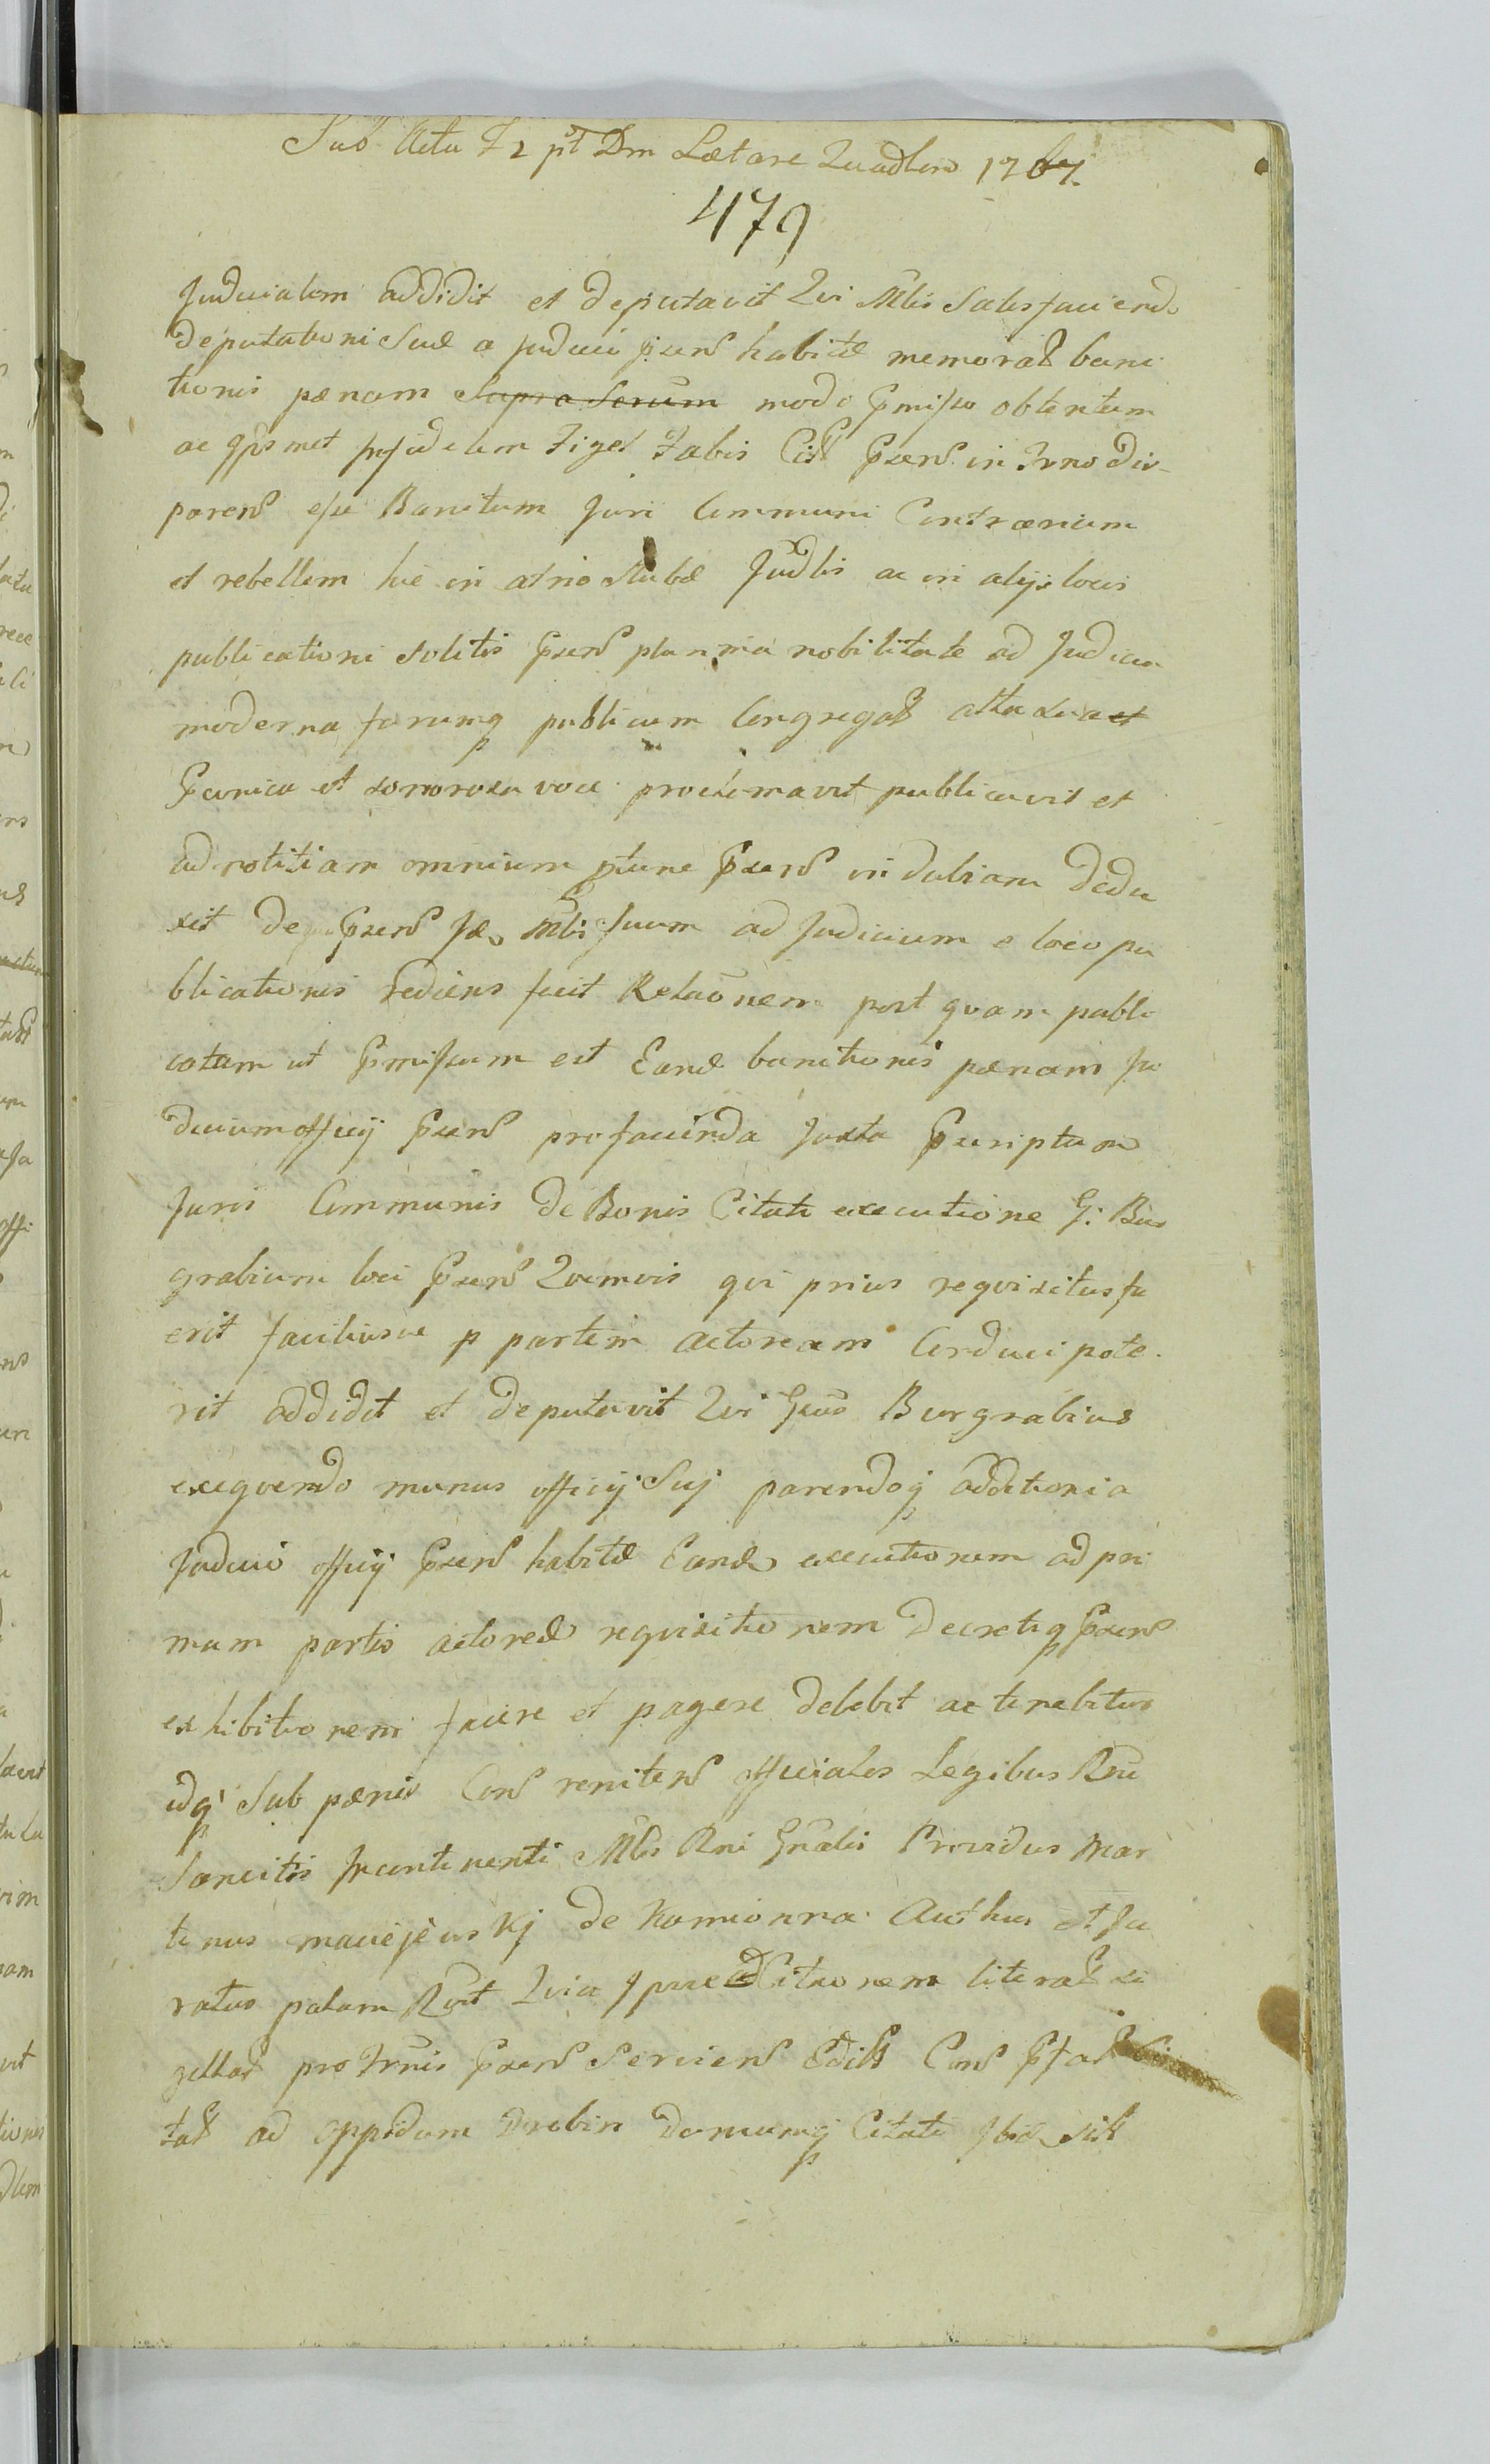 Sub Actu F 2 pt Dm Lætare Quadlem 1767.
479
Judicialem addidit et deputavit Qui Mlis Satisfaciendo
deputationi Suæ a Judicii præns habitæ memorat bani
tionis pænam Supra Scrum modo Pmisso obtentam
ac ipsmet Infidelem Citt Præns in Trno Div-
parens esse Banitum Juri Communi Contrarium
et rebellem hic in atrio Stubæ Judlis ac in alijs locis
publicationi solitis Præns plurima nobilitate ad Judicia
moderna forumq publicum Congregat alta sua et
Pconica et sonorosa voce proclamavit publicavit et
ad notitiam omnium ptunc Præns indubiam dedu
xit de Præns Mlis suum ad Judicium e loco pu
blicationis rediens fecit Relaonem post quam publi
catam ut Pmissum est Eand banitionis pænam Ju
dicium officij Præns pro facienda Juxta Pscriptum
Juris Communis de Bonis Citati executione G: Bur
grabium loci Præns Quemvis qui prius requisitus fu
erit faciliusve p partem actoream Conduci pote.
rit addidit et deputavit Qui Gnus Burgrabius
exequendo munus officij Suj parendoq additioni a
Judicio officij Præns habitæ Eand executionem ad pri
mam partis actoreæ requisitionem decretiq Præns
exhibitionem facere et pagere debebit ac tenebitur
idq sub pænis Cons renitens officiales Legibus Rni
Sancitis Incontinenti Mlis Rni Gnalis Providus Mar
tinus maciejewskj de Kamionna Authus et Ju
ratus palam Rvit Quia Ipse Citaonem literat si
gillat pro Trnis Præns Serviens Edict Cons Pfat Ci
tat ad oppidum Drobin domumq Citati Ibid sitt